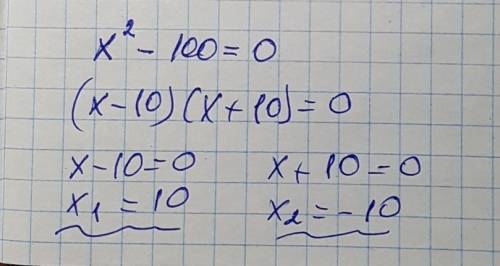 x² - 100 = 0
(x-10)(x+10) = 0
x-10=0 x+10=0
x₁ = 10 x₂ = -10